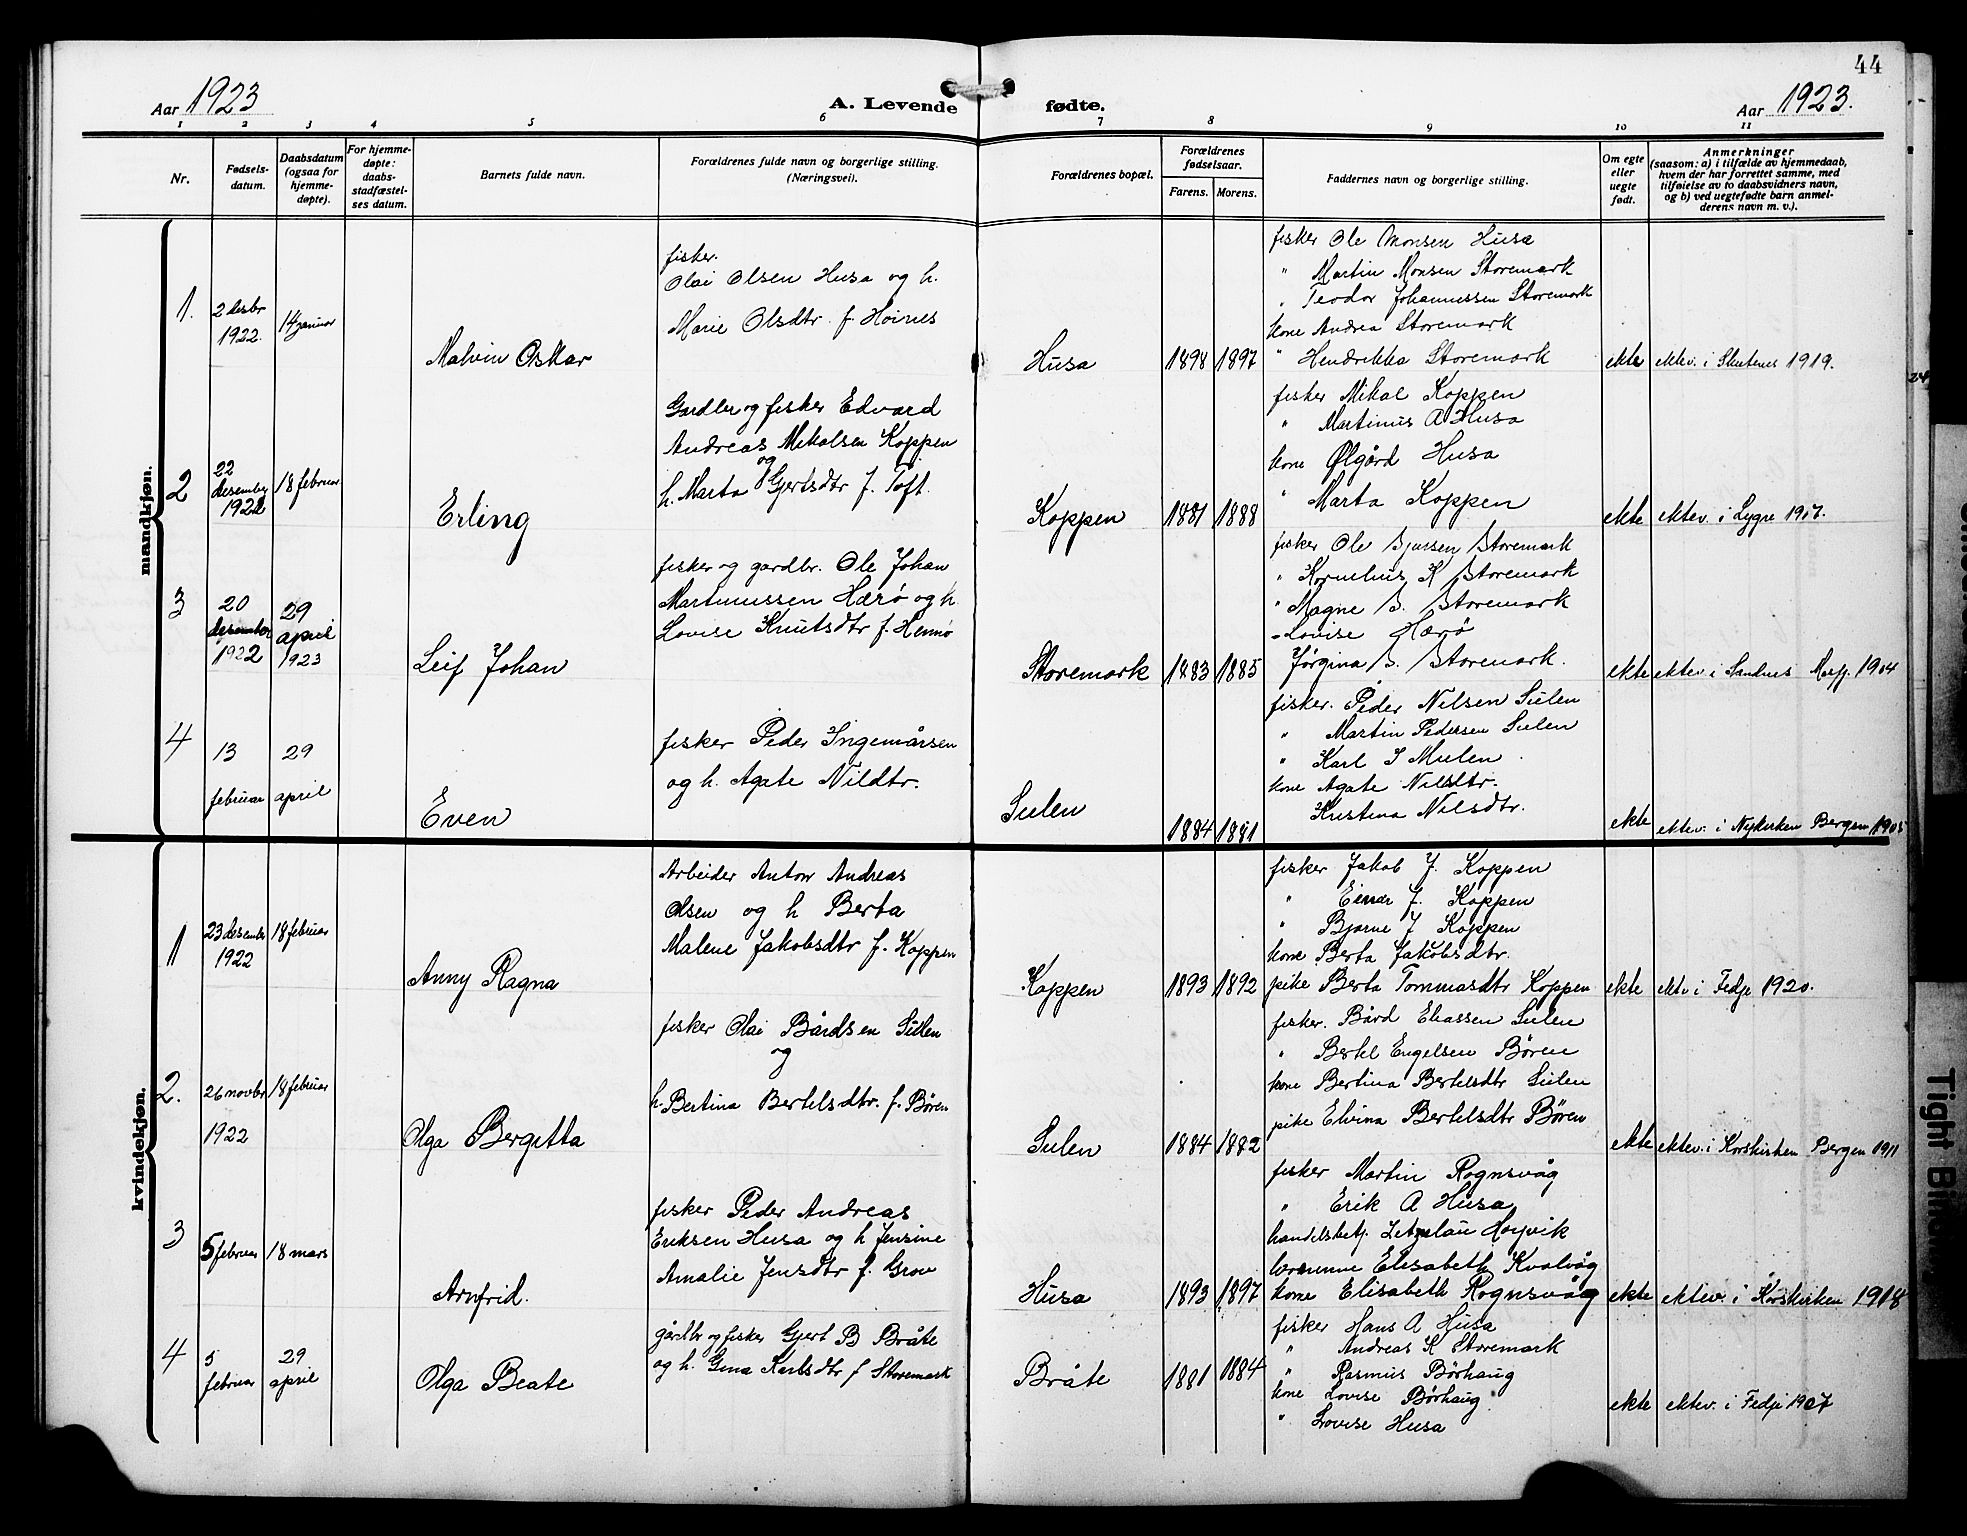 44
Aar 1923
A. Levende fødte.
Aar 1923.
1 2 3 4 5 6 7 8 9 10 11
Nr.
Fødsels-
datum.
Daabsdatum
(ogsaa for
hjemme-
døpte).
For hjemme-
døpte:
daabs-
stadfæstel-
ses datum.
Barnets fulde navn.
Forældrenes fulde navn og borgerlige stilling.
(Næringsvei).
Forældrenes bopæl.
Forældrenes
fødselsaar.
Farens. Morens.
Faddernes navn og borgerlige stilling.
Om egte
eller
uegte
født.
Anmerkninger
(saasom: a) i tilfælde av hjemmedaab,
hvem der har forrettet samme, med
tilføielse av to daabsvidners navn,
og b) ved uegtefødte barn anmel-
derens navn m. v.).
mandkjøn.
1.
2 desbr
1922.
14 januar
Malvin Oskar
fisker.
Olai Olsen Husa og h.
Marie Olsdtr. f. Hoines
Husa
1898 1897
fisker Ole Monsen Husa
" Martin Monsen Storemark
" Teodor Johannessen Storemark
kone Andrea Storemark
" Hendrikka Storemark
ekte
ektev. i Skutenes 1919.
2
22
desember
1922
18 februar
Erling
Gardbr og fisker Edvard
Andreas Mikalsen Koppen
og
h. Marta Gjertsdtr f. Toft.
Koppen
1881 1888
fisker Mikal Koppen
" Martinus A Husa
kone Ølgård Husa
" Marta Koppen
ekte
ektev. i Lygre 1917.
3
20
desember
1922
29
april
1923
Leif Johan
fisker og gardbr. Ole Johan
Martinussen Hærø og h.
Lovise Knutsdtr f. Hennø
Storemark
1883 1885
fisker Ole Bjarsen Storemark
" Kornelius K Storemark
" Magne B. Storemark
" Lovise Hærø
Jørgina B. Storemark.
ekte
ektev. i Sandnes Masfj. 1904
4
13
februar
29
april
Even
fisker Peder Ingemårsen
og h. Agate Nilsdtr.
Sulen
1884 1881
fisker. Peder Nilsen Sulen
" Martin Pedersen Sulen
" Karl I Mulen
kone Agate Nilsdtr.
Kristina Nilsdtr.
ekte
ektev. i Nykirken Bergen 1905
kvindekjøn.
1
23 desember
1922
18 februar
Anny Ragna
Arbeider Anton Andreas
Olsen og h Berta
Malene Jakobsdtr f. Koppen
Koppen
1893 1892
fisker Jakob J. Koppen
" Einar J. Koppen
" Bjarne J Koppen
kone Berta Jakobsdtr.
pike Berta Tommasdtr Koppen
ekte
ektv i Fedje 1920.
2.
26 novbr
1922
18 februar
Olga Bergitta
fisker Olai Bårdsen Sulen
og
h. Bertina Bertelsdtr. f. Børen
Sulen
1884 1882
fisker. Bård Eliassen Sulen
" Bertel Engelsen Børen
kone Bertina Bertelsdtr Sulen
pike Elvina Bertelsdtr Børen
ekte
ektev. i Korskirken Bergen 1911
3
5 februar
18 mars
Arnfrid.
fisker Peder Andreas
Eriksen Husa og h Jensine
Amalie Jensdtr f. Grov
Husa
1893 1897
fisker Martin Rognsvåg
" Erik A Husa
handelsbetj.
Elisabeth Kvalvåg
kone Elisabeth Rognsvåg
ekte
ektev. i Korskirken 1918
4
5
februar
29
april
Olga Beate
gårdbr og fisker Gjert B Bråte
og h. Gina Karlsdtr f Storemark
Bråte
1881 1884
fisker Hans A Husa
" Andreas K Storemark
" Rasmus Børhaug
kone Lovise Børhaug.
" Lovise Husa
ekte
ektev. i Fedje 1907
Tight Bin